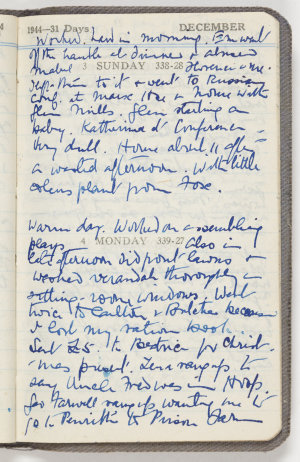 1944—31 Days DECEMBER
Worked hard in morning. Em went
off the handle at dinner & abused
Mabel 3 SUNDAY 338-28 Florence & me.
this to it & went to Russian
Conf. at Maise & home with
Glen Mills. Glen starting a
baby. Katharine at Conference
very dull. Home about 11 after
a wasted afternoon. With little
coleus plant from
Warm day. Worked on assembling
plays 4 MONDAY 339-27 Also in
late afternoon did front lawns &
washed verandah thoroughly &
sitting-room windows. Went
twice to Carlton & Butcher because
I lost my ration book...
Sent £5 to Beatrice for Christ-
mas present. Zena rang up to
say Uncle Fred was in Hosp.
Geo Farwell rang up wanting me to
go to Penrith to Prison Farm